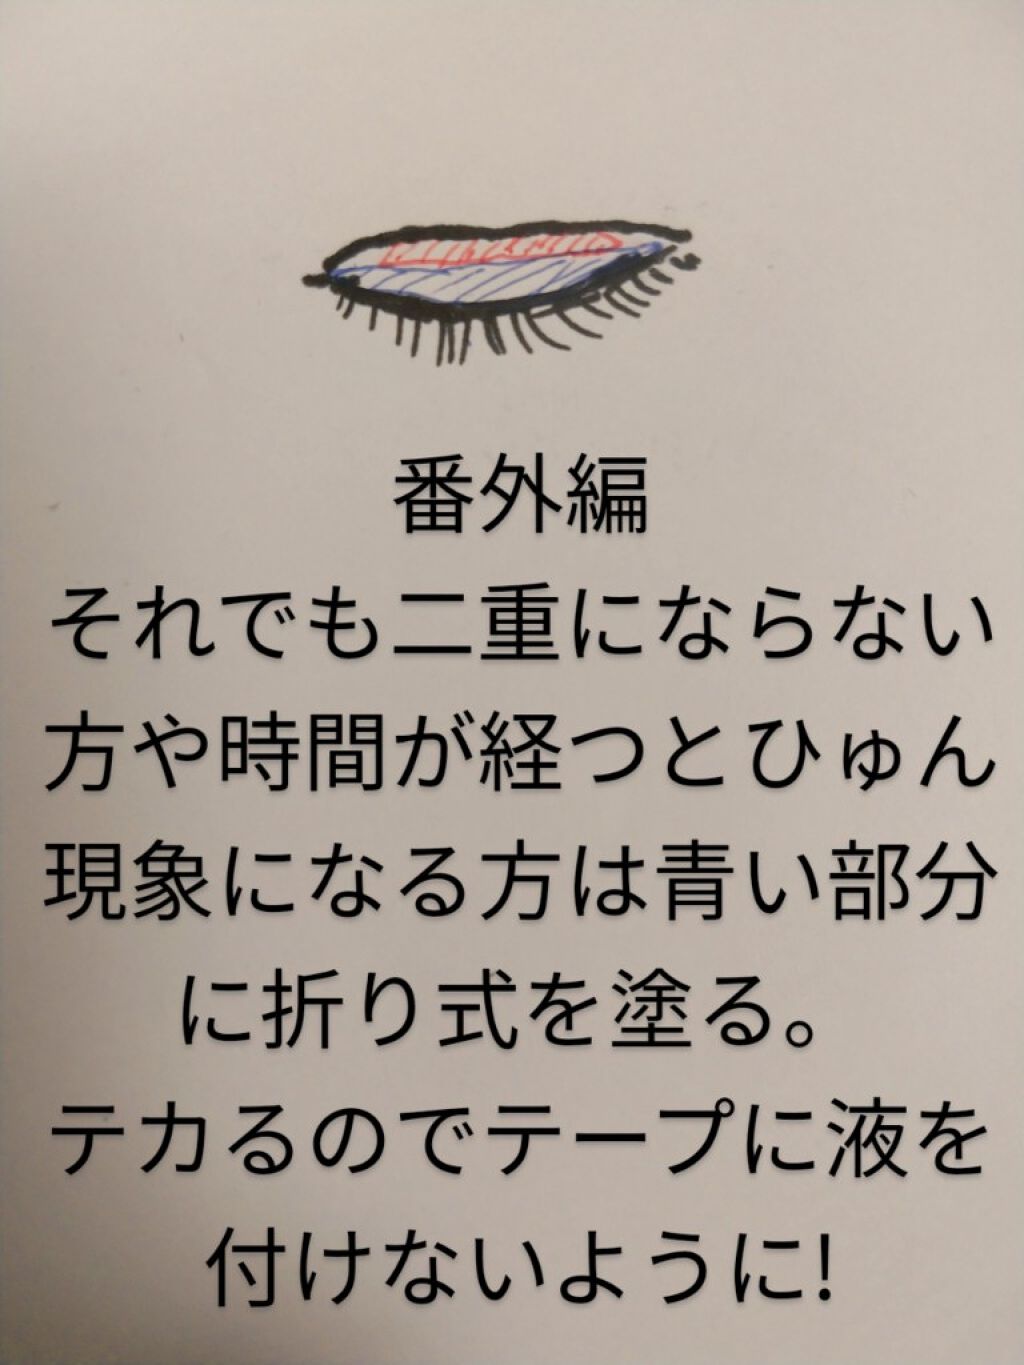 番外編
それでも二重にならない
方や時間が経つとひゅん
現象になる方は青い部分
に折り式を塗る。
テカるのでテープに液を
付けないように!